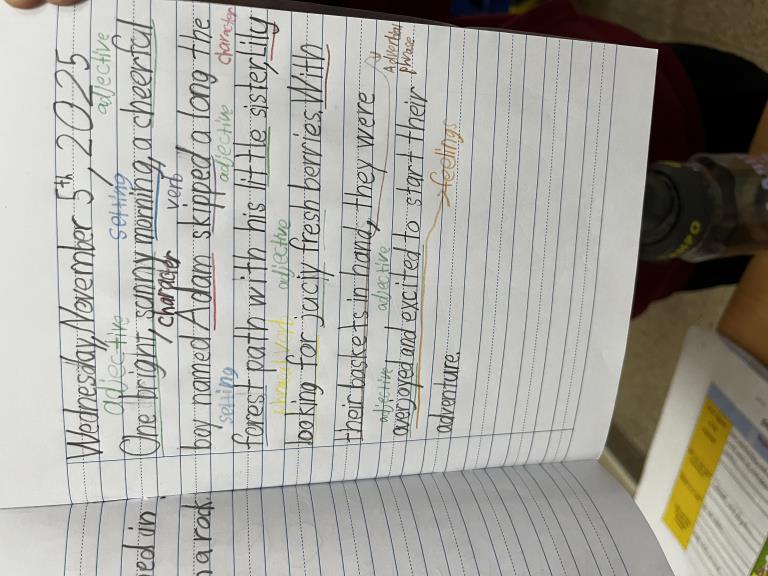 Wednesday, November 5th, 2025
adjective setting adjective
One bright, sunny morning, a cheerful
character verb character
boy named Adam skipped a long the
setting adjective
forest path with his little sister, Lily
phrasal verb adjective
looking for juciy fresh berries. With
Adverbial phrase
their baskets in hand, they were
adjective adjective
overjoyed and excited to start their
feelings
adventure.
ed in
a rad
MPO